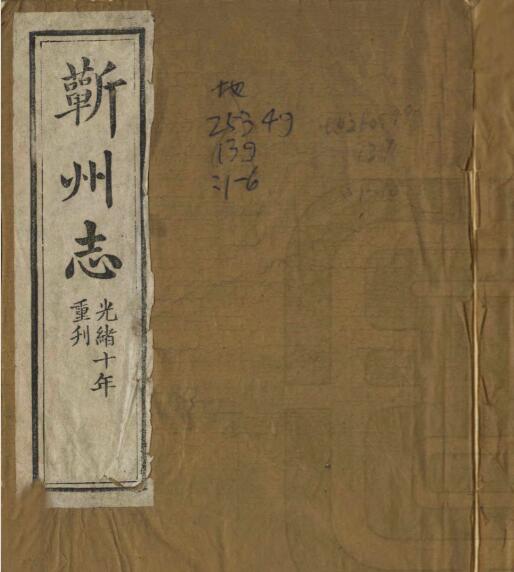 蘄州志
光緒十年
重刋
地
25349
139
:1-6